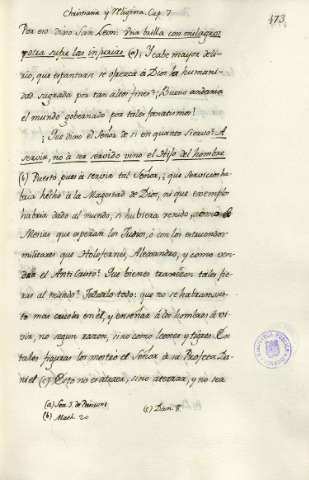 Christiana y Mugima. Cap. 7.
173.
Por eso dixo San Leon: Una brilla con milagros
y otra sufre las injurias (a). Y cabe mayor deli-
rio, que espantarse se ofrezca á Dios la humani-
dad sagrada por tan altos fines? ¡Bueno andaria
el mundo gobernado por tales fanatismos!
¿Que dixo el Señor de si en quanto siervo? A
servir, no á ser servido vino el Hijo del hombre
(b) Puesto pues á servir tal Señor, ¿que servicio ha-
bria hecho á la Magestad de Dios, ni que exemplo
habria dado al mundo, si hubiera venido, como el
Mesias que esperan los Judios, ó con los estruendos
militares que Holofernes, Alexandro, y como ven-
drá el AntiCristo? Que bienes traxeron tales fie-
ras al mundo? todo: que no se habran vis-
to mas crueles en él, y enseñar á los hombres á vi-
vir, no segun razon, sino como leones y tigres. En
tales figuras los mostró el Señor á su Profeta Da-
niel (c) Esto no es atraer, sino aterrar, y no sea
(a) Ser. 3. de
(b) Math. 20
(c) Dan. 8.